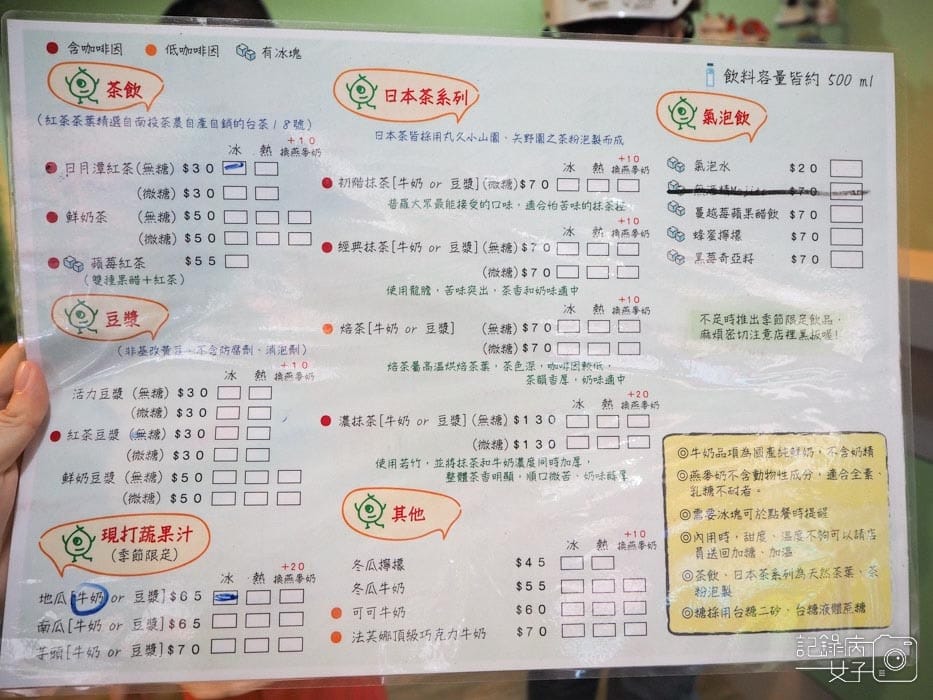 含咖啡因 低咖啡因 有冰塊
飲料容量皆約 500 ml
茶飲
(紅茶茶葉精選自南投茶農自產自銷的台茶18號)
冰 熱 +10 換燕麥奶
日月潭紅茶(無糖) $30
(微糖) $30
鮮奶茶 (無糖) $50
(微糖) $50
蘋莓紅茶 $55
(雙種果醋+紅茶)
豆漿
(非基改黃豆、不含防腐劑、消泡劑)
冰 熱 +10 換燕麥奶
活力豆漿 (無糖) $30
(微糖) $30
紅茶豆漿 (無糖) $30
(微糖) $30
鮮奶豆漿 (無糖) $50
(微糖) $50
現打蔬果汁
(季節限定)
冰 熱 +20 換燕麥奶
地瓜[牛奶 or 豆漿] $65
南瓜[牛奶 or 豆漿] $65
芋頭[牛奶 or 豆漿] $70
日本茶系列
日本茶皆採用丸久小山園、矢野園之茶粉泡製而成
冰 熱 +10 換燕麥奶
初階抹茶[牛奶 or 豆漿] (微糖) $70
(微糖) $70
普羅大眾最能接受的口味,適合怕苦味的抹茶控
冰 熱 +10 換燕麥奶
經典抹茶[牛奶 or 豆漿] (無糖) $70
(微糖) $70
使用龍膽,苦味突出,茶香和奶味適中
冰 熱 +10 換燕麥奶
焙茶[牛奶 or 豆漿] (無糖) $70
(微糖) $70
焙茶屬高溫烘焙茶葉,茶色深,咖啡因較低,
茶韻香厚,奶味適中
冰 熱 +20 換燕麥奶
濃抹茶[牛奶 or 豆漿] (無糖) $130
(微糖) $130
使用若竹,並將抹茶和牛奶濃度同時加厚,
整體茶香明顯,順口微苦、奶味醇厚
其他
冰 熱 +10 換燕麥奶
冬瓜檸檬 $45
冬瓜牛奶 $55
可可牛奶 $60
法芙娜頂級巧克力牛奶 $70
氣泡飲
氣泡水 $20
無酒精Mojito $70
蔓越莓蘋果醋飲 $70
蜂蜜檸檬 $70
黑莓奇亞籽 $70
不定時推出季節限定飲品,
麻煩密切注意店裡黑板喔!
◎牛奶品項為國產純鮮奶,不含奶精
◎燕麥奶不含動物性成分,適合全素、
乳糖不耐者。
◎需要冰塊可於點餐時提醒
◎內用時,甜度、溫度不夠可以請店
員送回加糖、加溫
◎茶飲、日本茶系列為天然茶葉、茶
粉泡製
◎糖採用台糖二砂、台糖液體蔗糖
記錄病
女子